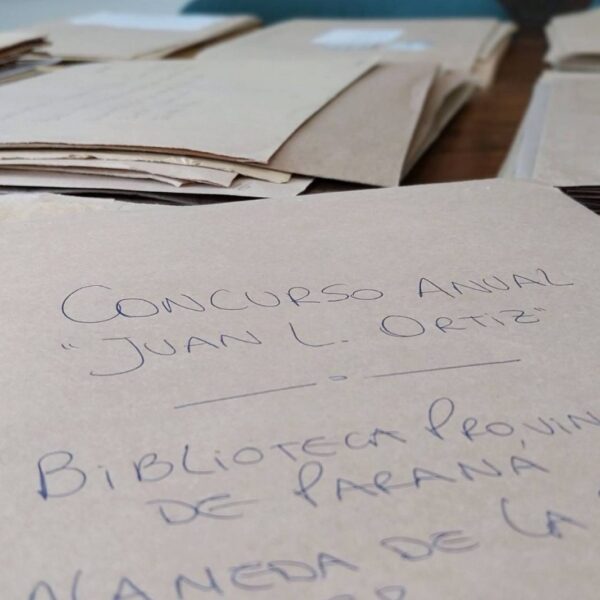 CONCURSO ANUAL
"JUAN L. ORTIZ"
BIBLIOTECA PROVIN
DE PARANA
ALAMEDA DE LA